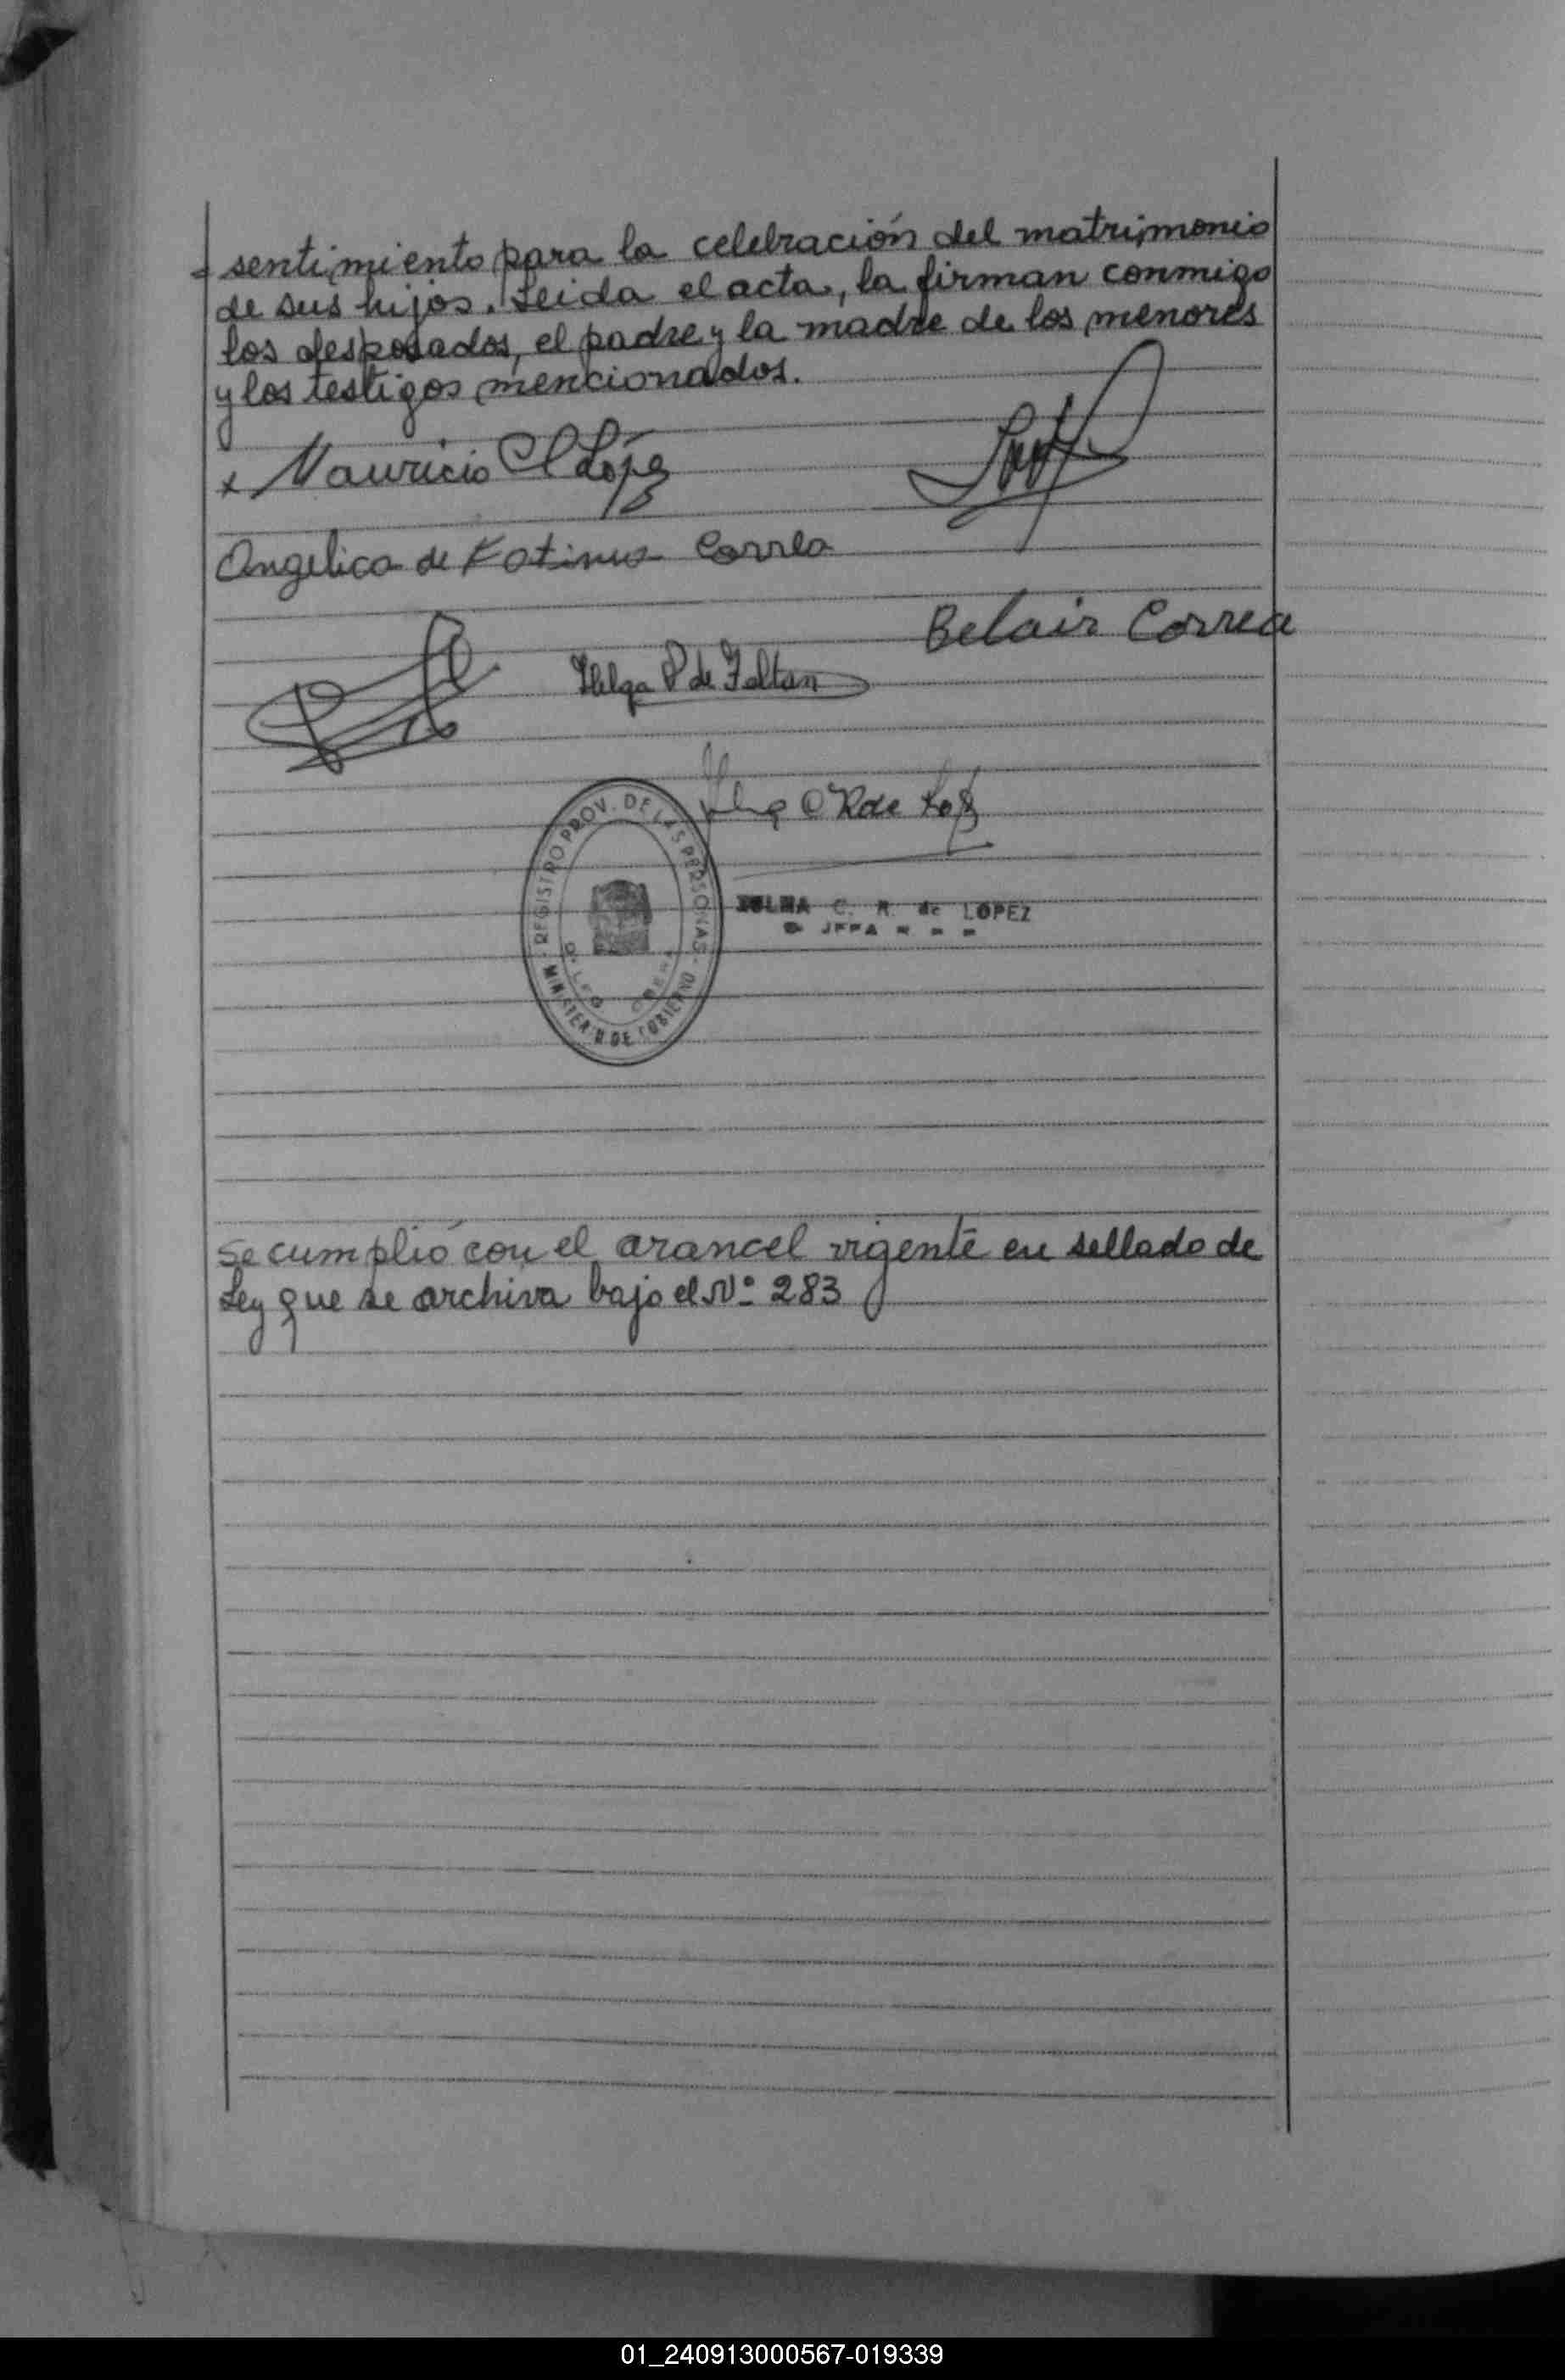 = sentimiento para la celebración del matrimonio
de sus hijos. Leida el acta, la firman conmigo
los desposados, el padre y la madre de los menores
y los testigos mencionados.
x Mauricio López
Angelica de Fatima Correa
Belair Correa
Helga P de Faltan
REGISTRO PROV. DE LAS PERSONAS
MINISTERIO DE GOBIERNO
C. R. de LOPEZ
JEFA
Se cumplió con el arancel vigente en sellado de
Ley que se archiva bajo el Nº 283
01_240913000567-019339